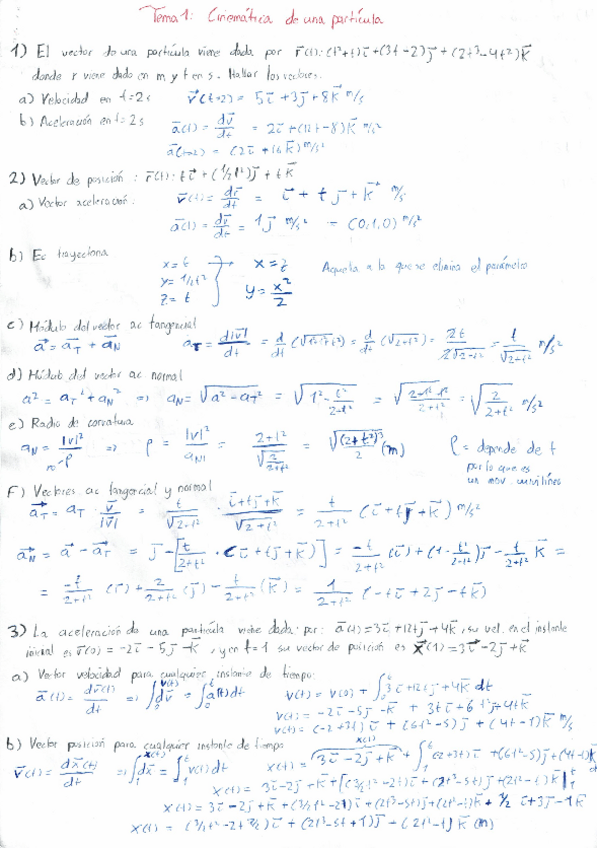 Tema 1: Cinemática de una partícula
1) El vector de una partícula viene dada por r⃗(t): (t²+t)i⃗+(3t-2)j⃗+(2t³-4t²)k⃗
donde r viene dado en m y t en s. Hallar los vectores.
a) Velocidad en t=2s v⃗(t=2) = 5i⃗+3j⃗+8k⃗ m/s
b) Aceleración en t=2s a⃗(t) = dv⃗/dt = 2i⃗+(12t-8)k⃗ m/s²
a⃗(t=2) = (2i⃗+16k⃗) m/s²
2) Vector de posición: r⃗(t): ti⃗+(1/2t²)j⃗+tk⃗
a) Vector aceleración: v⃗(t) = dr⃗/dt = i⃗ + tj⃗ + k⃗ m/s
a⃗(t) = dv⃗/dt = 1j⃗ m/s² = (0,1,0) m/s²
b) Ec trayectoria
x = t x = z Aquella a la que se elimina el parámetro
y = 1/2t² y = x²/2
z = t
c) Módulo del vector ac tangencial
a⃗ = a⃗T + a⃗N aT = d|v⃗|/dt = d/dt (√1²+t²+1²) = d/dt (√2+t²) = 2t/2√2+t² = t/√2+t² m/s²
d) Módulo del vector ac normal
a² = aT² + aN² ⇒ aN = √a²-aT² = √1²-t²/2+t² = √2+t²-t²/2+t² = √2/2+t² m/s²
e) Radio de curvatura
aN = |v|²/ρ ⇒ ρ = |v|²/aN = 2+t²/√2/2+t² = √(2+t²)³/2 (m) ρ = depende de t
por lo que es
un mov. curvilíneo
F) Vectores ac tangencial y normal
a⃗T = aT · v⃗/|v⃗| = t/√2+t² · i⃗+tj⃗+k⃗/√2+t² = t/2+t² (i⃗+tj⃗+k⃗) m/s²
a⃗N = a⃗ - a⃗T = j⃗ - [t/2+t² · (i⃗+tj⃗+k⃗)] = -t/2+t² (i⃗) + (1 - t²/2+t²)j⃗ - t/2+t² k⃗ =
= -t/2+t² (i⃗) + 2/2+t² (j⃗) - t/2+t² (k⃗) = 1/2+t² (-ti⃗+2j⃗-tk⃗)
3) La aceleración de una partícula viene dada por: a⃗(t)=3i⃗+12tj⃗+4k⃗, su vel. en el instante
inicial es v⃗(0) = -2i⃗-5j⃗-k⃗, y en t=1 su vector de posición es x⃗(1)=3i⃗-2j⃗+k⃗
a) Vector velocidad para cualquier instante de tiempo:
a⃗(t) = dv⃗(t)/dt ⇒ ∫dv⃗ = ∫a⃗(t)dt v(t) = v(0) + ∫3i⃗+12tj⃗+4k⃗ dt
v(t) = -2i⃗-5j⃗-k⃗ + 3ti⃗+6t²j⃗+4tk⃗
v(t) = (-2+3t)i⃗ + (6t²-5)j⃗ + (4t-1)k⃗ m/s
b) Vector posición para cualquier instante de tiempo
v⃗(t) = dx⃗(t)/dt ⇒ ∫dx⃗ = ∫v(t)dt x(t) = 3i⃗-2j⃗+k⃗ + ∫(-2+3t)i⃗ + (6t²-5)j⃗ + (4t-1)k⃗ dt
x(t) = 3i⃗-2j⃗+k⃗+[(3/2t²-2t)i⃗+(2t³-5t)j⃗+(2t²-t)k⃗]
x(t) = 3i⃗-2j⃗+k⃗+(3/2t²-2t)i⃗+(2t³-5t)j⃗+(2t²-t)k⃗ + 1/2i⃗+3j⃗-1k⃗
x(t) = (3/2t²-2t+7/2)i⃗ + (2t³-5t+1)j⃗ + (2t²-t)k⃗ (m)